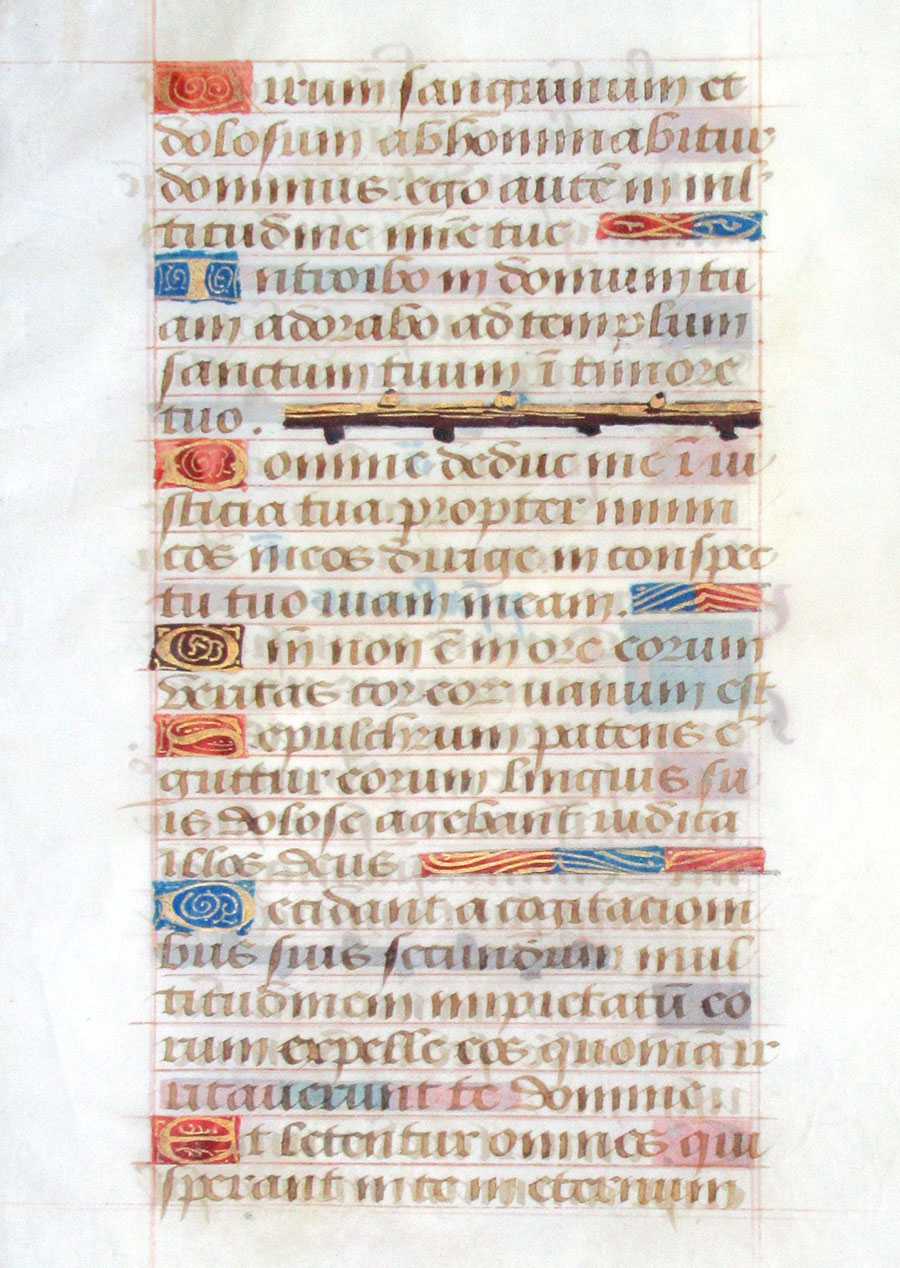 Virum sanguinum et
dolosum abhominabitur
dominus. ego autē in mul
titudine mīe tue
Introibo in domum tu
am adorabo ad templum
sanctum tuum ī timore
tuo.
Domine deduc me ī iu
sticia tua propter inimi
cos meos dirige in conspec
tu tuo uiam meam.
Qm̄ non ē in ore eorum
veritas cor eorum uanum est
Sepulchrum patens ē
guttur eorum linguis su
is dolose agebant iudica
illos deus
Decidant a cogitacioni
bus suis secundum mul
titudinem impietatū eo
rum expelle eos quoniā ir
ritauerunt te domine.
Et letentur omnes qui
sperant in te in eternum